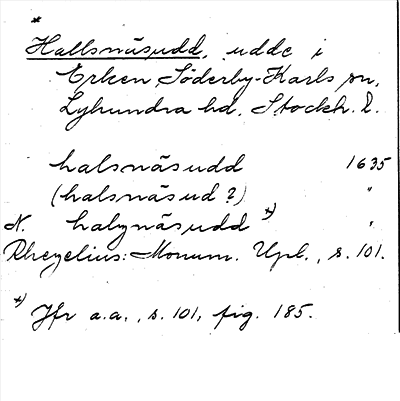 *
Hallsnäsudd, udde i
Erken, Söderby-Karls sn,
Lyhundra hd, Stockh. l.
halsnäsudd 1635
(halsnäsud?) "
N. halynäsudd *) "
Rhezelius: Monum. Upl., s. 101.
*) Jfr a.a., s. 101, fig. 185.